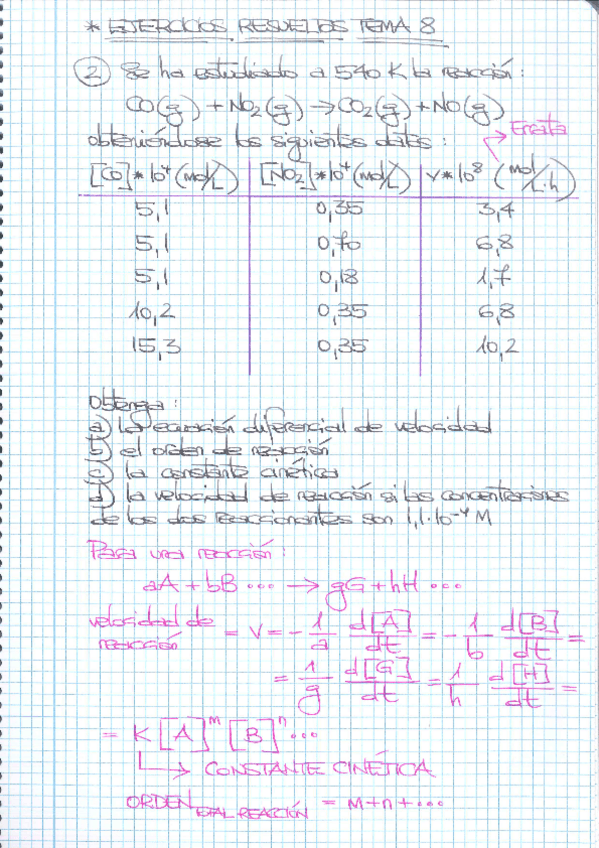 * EJERCICIOS RESUELTOS TEMA 8
② Se ha estudiado a 540 K la reacción:
CO(g) + NO₂(g) → CO₂(g) + NO(g)
obteniéndose los siguientes datos: Errata
[CO]*10⁴ (mol/L) [NO₂]*10⁴ (mol/L) V*10⁸ (mol/L·h)
5,1 0,35 3,4
5,1 0,70 6,8
5,1 0,18 1,7
10,2 0,35 6,8
15,3 0,35 10,2
Obtenga:
a) la ecuación diferencial de velocidad
b) el orden de reacción
c) la constante cinética
d) la velocidad de reacción si las concentraciones
de los dos reaccionantes son 1,1·10⁻⁴ M
Para una reacción:
aA + bB ··· → gG + hH ···
velocidad de reacción = V = - 1/a d[A]/dt = - 1/b d[B]/dt =
= 1/g d[G]/dt = 1/h d[H]/dt =
= K [A]ᵐ [B]ⁿ ···
→ CONSTANTE CINÉTICA
ORDEN TOTAL REACCIÓN = m+n+···